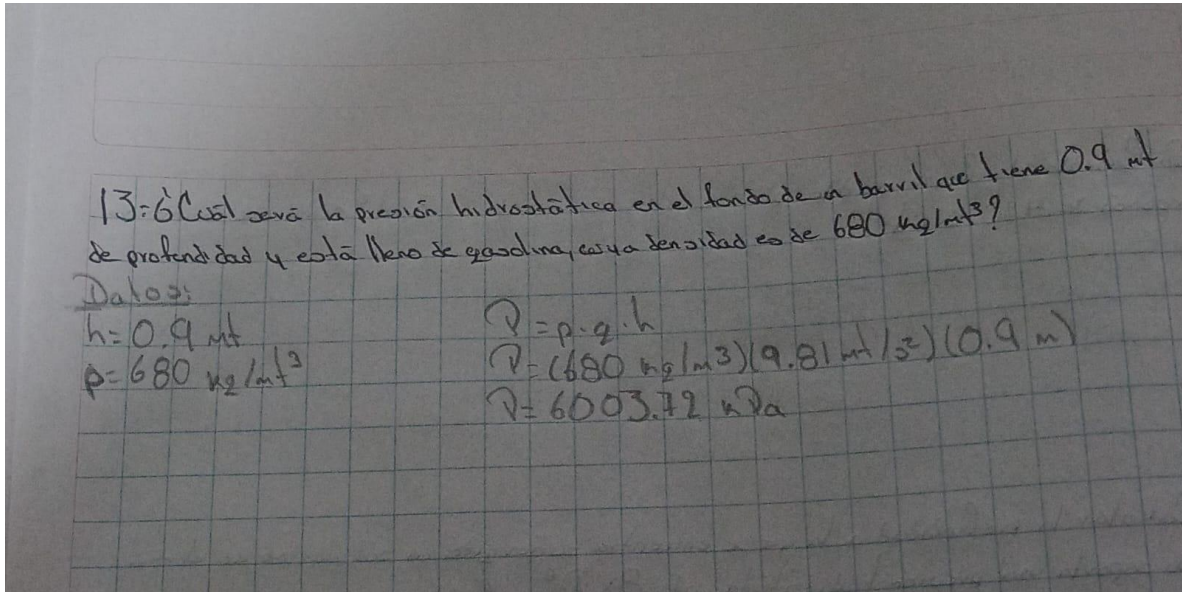 13=¿Cuál será la presión hidrostática en el fondo de un barril que tiene 0.9 mt
de profundidad y está lleno de gasolina, cuya densidad es de 680 kg/mt³?
Datos:
h=0.9 mt
ρ=680 kg/mt³
P=ρ.g.h
P=(680 kg/m3)(9.81 mt/s²)(0.9 m)
P=6003.72 kPa